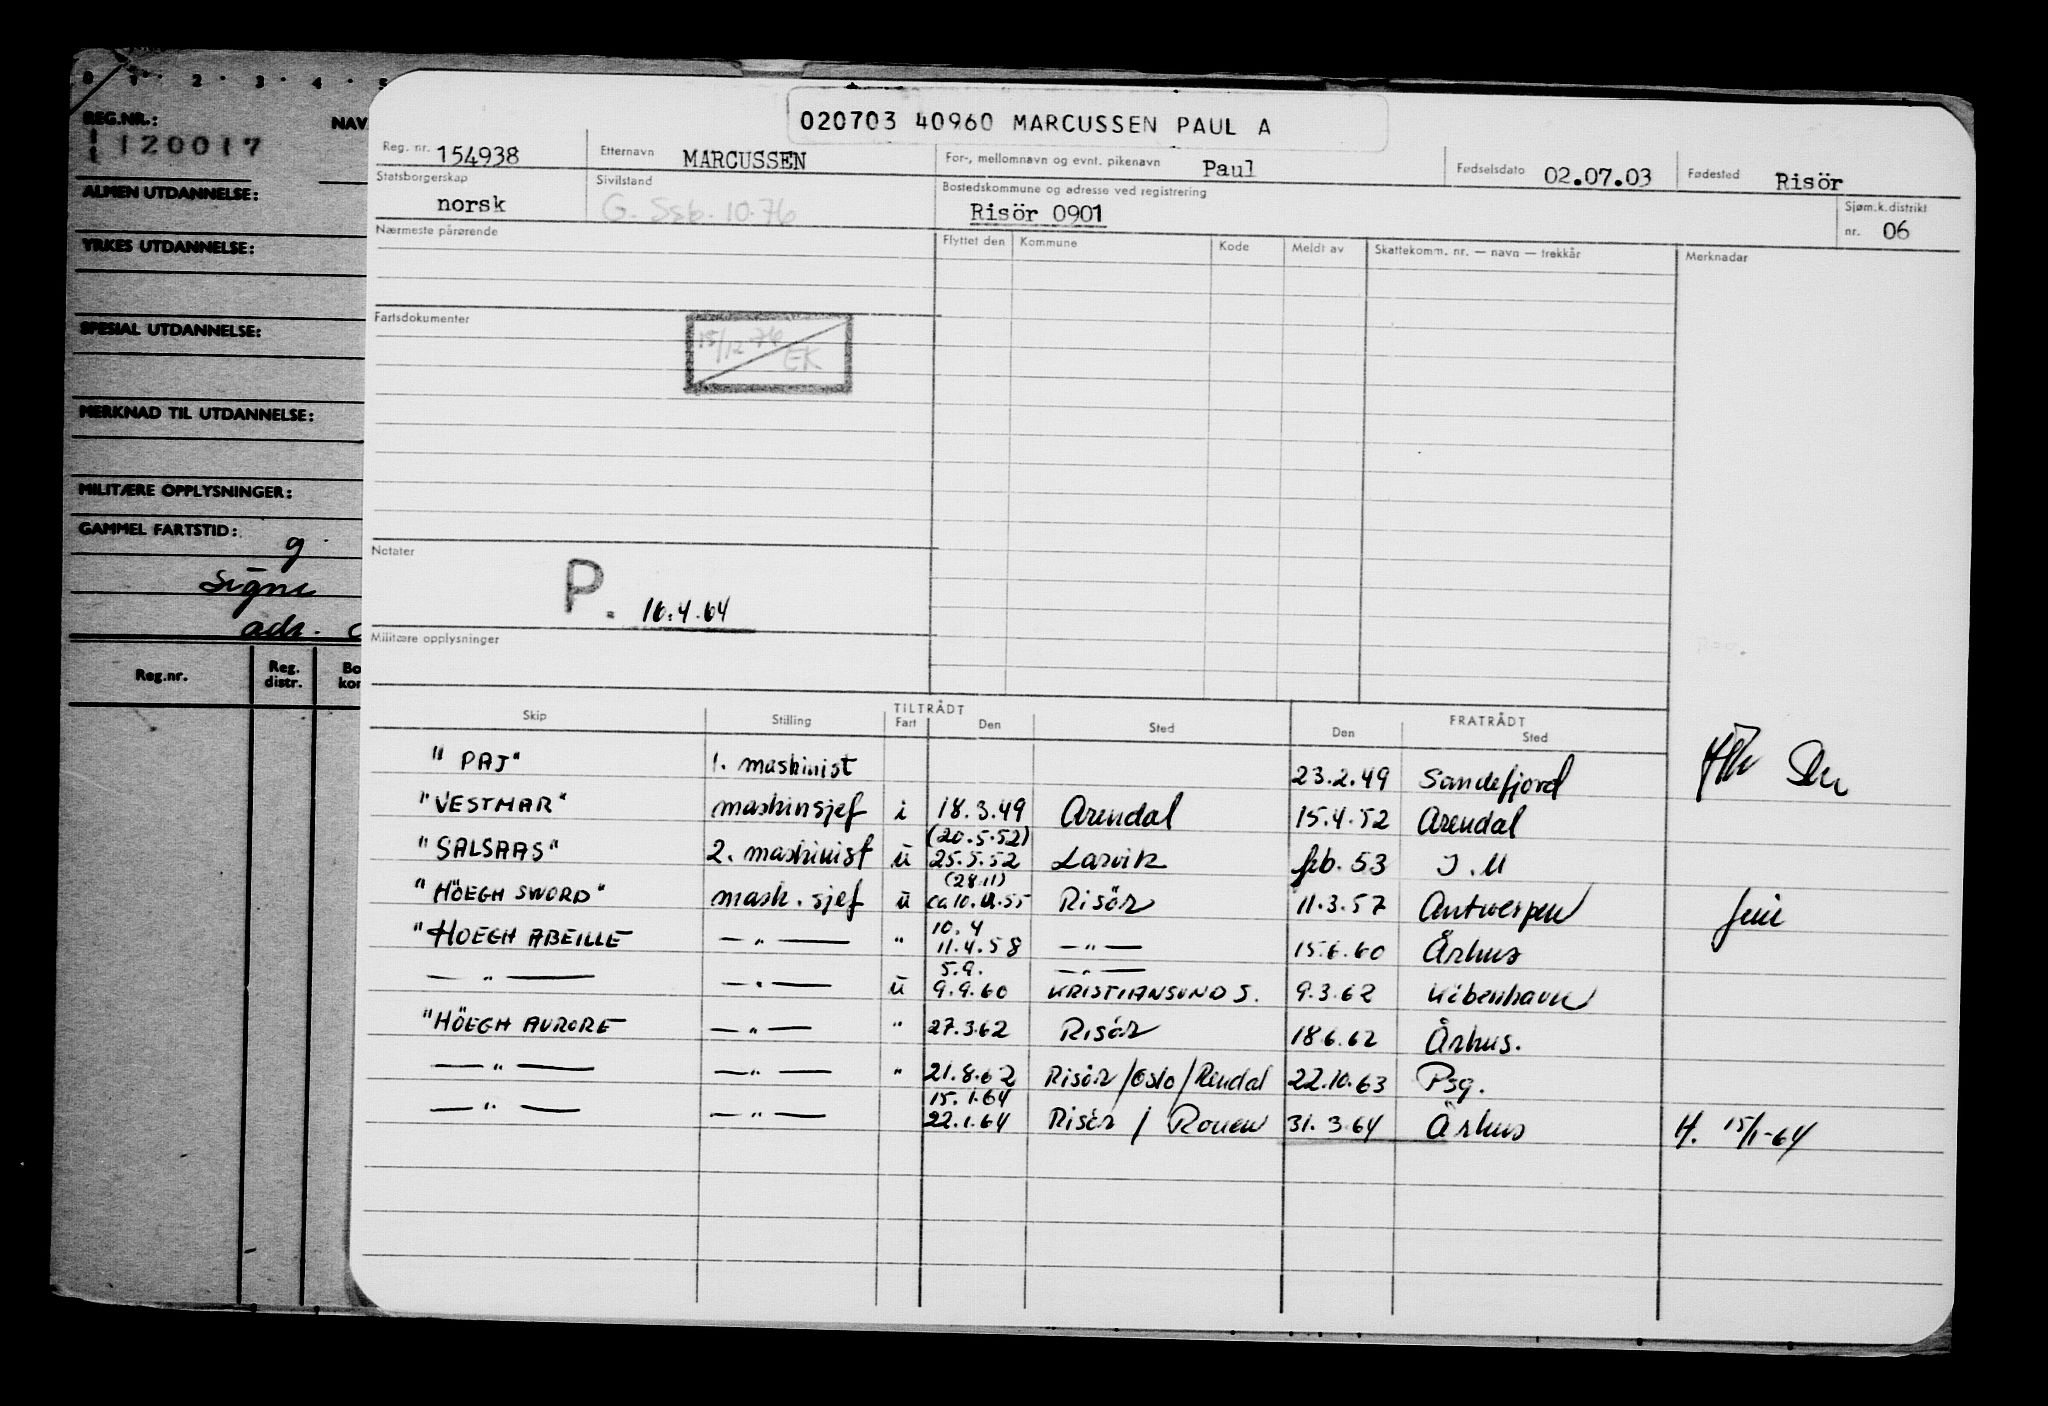 0 1 2 3 4 5
REG.NR.:
120017
NAV
ALMEN UTDANNELSE:
YRKES UTDANNELSE:
SPESIAL UTDANNELSE:
MERKNAD TIL UTDANNELSE:
MILITÆRE OPPLYSNINGER:
GAMMEL FARTSTID:
g
Signe
adr.
Reg.nr. Reg. distr. Bo kor
020703 40960 MARCUSSEN PAUL A
Reg. nr. 154938 Etternavn MARCUSSEN For-, mellomnavn og evnt. pikenavn Paul Fødselsdato 02.07.03 Fødested Risör
Statsborgerskap norsk Sivilstand G. Ssb. 10.76 Bostedskommune og adresse ved registrering Risör 0901 Sjøm.k.distrikt nr. 06
Nærmeste pårørende Flyttet den Kommune Kode Meldt av Skattekomm. nr. — navn — trekkår Merknadar
Fartsdokumenter
15/12 76 EK
Notater
P. 16.4.64
Militære opplysninger
TILTRÅDT FRATRÅDT
Skip Stilling Fart Den Sted Den Sted
"PAJ" 1. maskinist 23.2.49 Sandefjord
"VESTMAR" maskinsjef i 18.3.49 Arendal 15.4.52 Arendal
(20.5.52)
"SALSAAS" 2. maskinist u 25.5.52 Larvik feb. 53 I.M
(28.11)
"HÖEGH SWORD" mask. sjef u ca 10.11.55 Risör 11.3.57 Antwerpen
10.4
"HOEGH ABEILLE — " — " 11.4.58 — " — 15.6.60 Århus
5.9. — " —
— " — — " — u 9.9.60 KRISTIANSUND S. 9.3.62 Köbenhavn
"HÖEGH AURORE — " — " 27.3.62 Risör 18.6.62 Århus.
— " — — " — " 21.8.62 Risör/Oslo/Arendal 22.10.63 Psg.
15.1.64
— " — — " — 22.1.64 Risör / Rouen 31.3.64 Århus H. 15/1-64